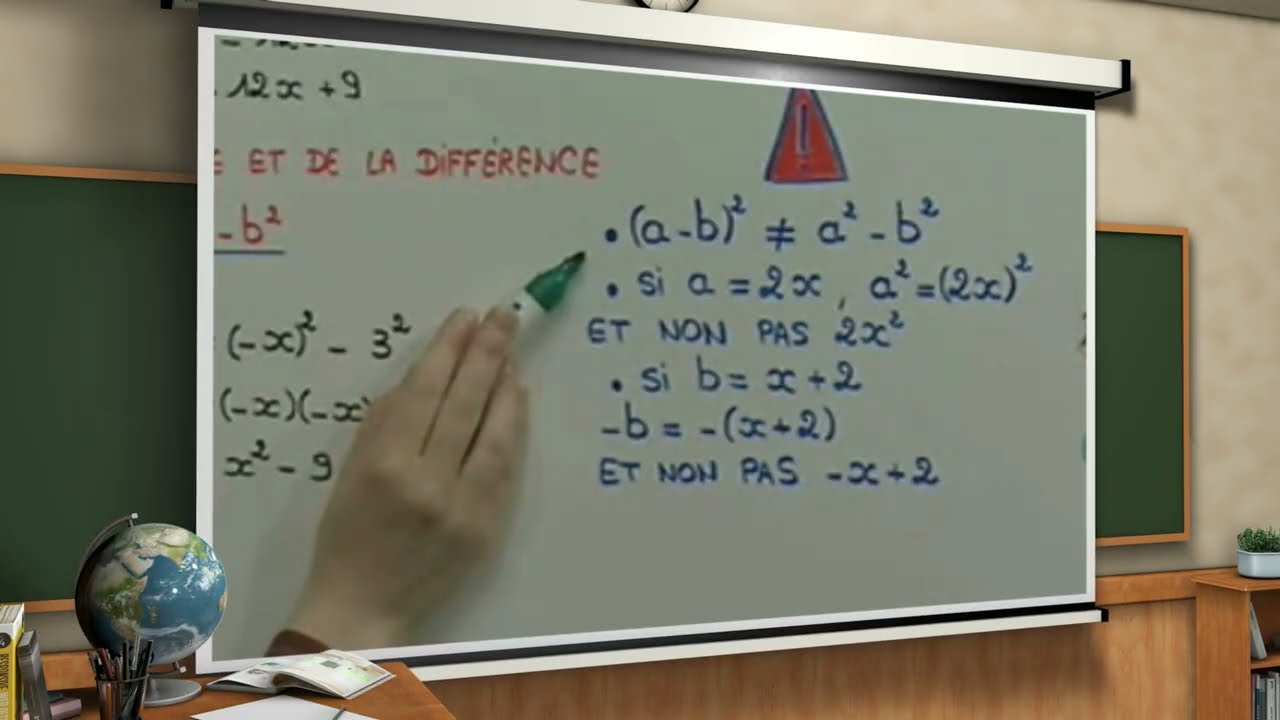 12x + 9
ET DE LA DIFFÉRENCE
- b²
(-x)² - 3²
(-x)(-x)
x² - 9
!
• (a - b)² ≠ a² - b²
• si a = 2x , a² = (2x)²
ET NON PAS 2x²
• si b = x + 2
-b = -(x + 2)
ET NON PAS -x + 2